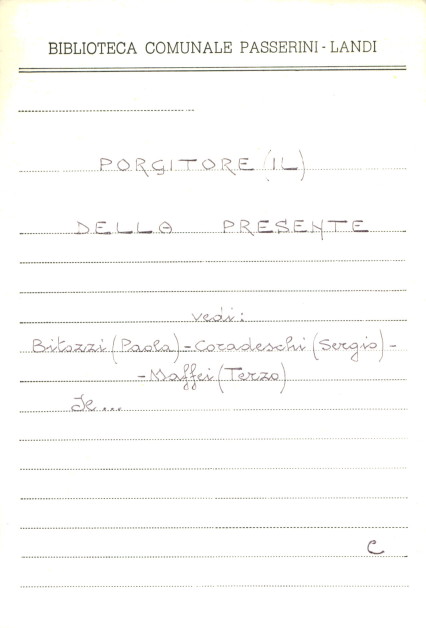 BIBLIOTECA COMUNALE PASSERINI - LANDI
PORGITORE (IL)
DELLA PRESENTE
vedi:
Bitozzi (Paola) - Coradeschi (Sergio) -
- Maffei (Terzo)
Se...
C